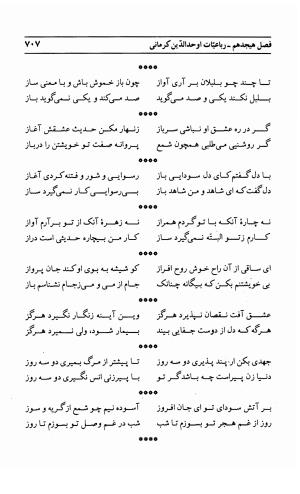 فصل هیجدهم ـ رباعیّات اوحدالدّین کرمانی ۷۰۷
****
تا چند چو بلبلان بر آری آواز چون باز خموش باش و با معنی ساز
بلبل نکند یکی و صد می‌گوید صد می‌کند و یکی نمی‌گوید باز
****
گر در ره عشق او نباشی سرباز زنهار مکن حدیث عشقش آغاز
گر روشنیی می‌طلبی همچون شمع پروانه صفت تو خویشتن را درباز
****
با دل گفتم کای دل سودایی باز رسوایی و شور و فتنه کردی آغاز
دل گفت که ای شاهد و من شاهد باز بی‌رسوایی کار نمی‌گیرد ساز
****
نه چارهٔ آنکه با تو گردم همراز نه زهرهٔ آنک از تو برآرم آواز
کارم ز تو البتّه نمی‌گیرد ساز کار من بیچاره حدیثی است دراز
****
ای ساقی از آن راح خوش روح افراز کو شیشه به بوی او کند جان پرواز
بی خویشتنم بکن که بیگانه چنانک جام از می و می ز جام نشناسم باز
****
عشق آفت نقصان نپذیرد هرگز وین آینه زنگار نگیرد هرگز
هرگه که دل از دوست جفایی بیند بیمار شود، ولی نمیرد هرگز
****
جهدی بکن ار پند پذیری دو سه روز تا پیشتر از مرگ بمیری دو سه روز
دنیا زن پیراست چه باشد گر تو با پیرزنی انس نگیری دو سه روز
****
بر آتش سودای تو ای جان افروز آسوده نیم چو شمع از گریه و سوز
روز از غم هجر تو بسوزم تا شب شب در غم وصل تو بسوزم تا روز
****